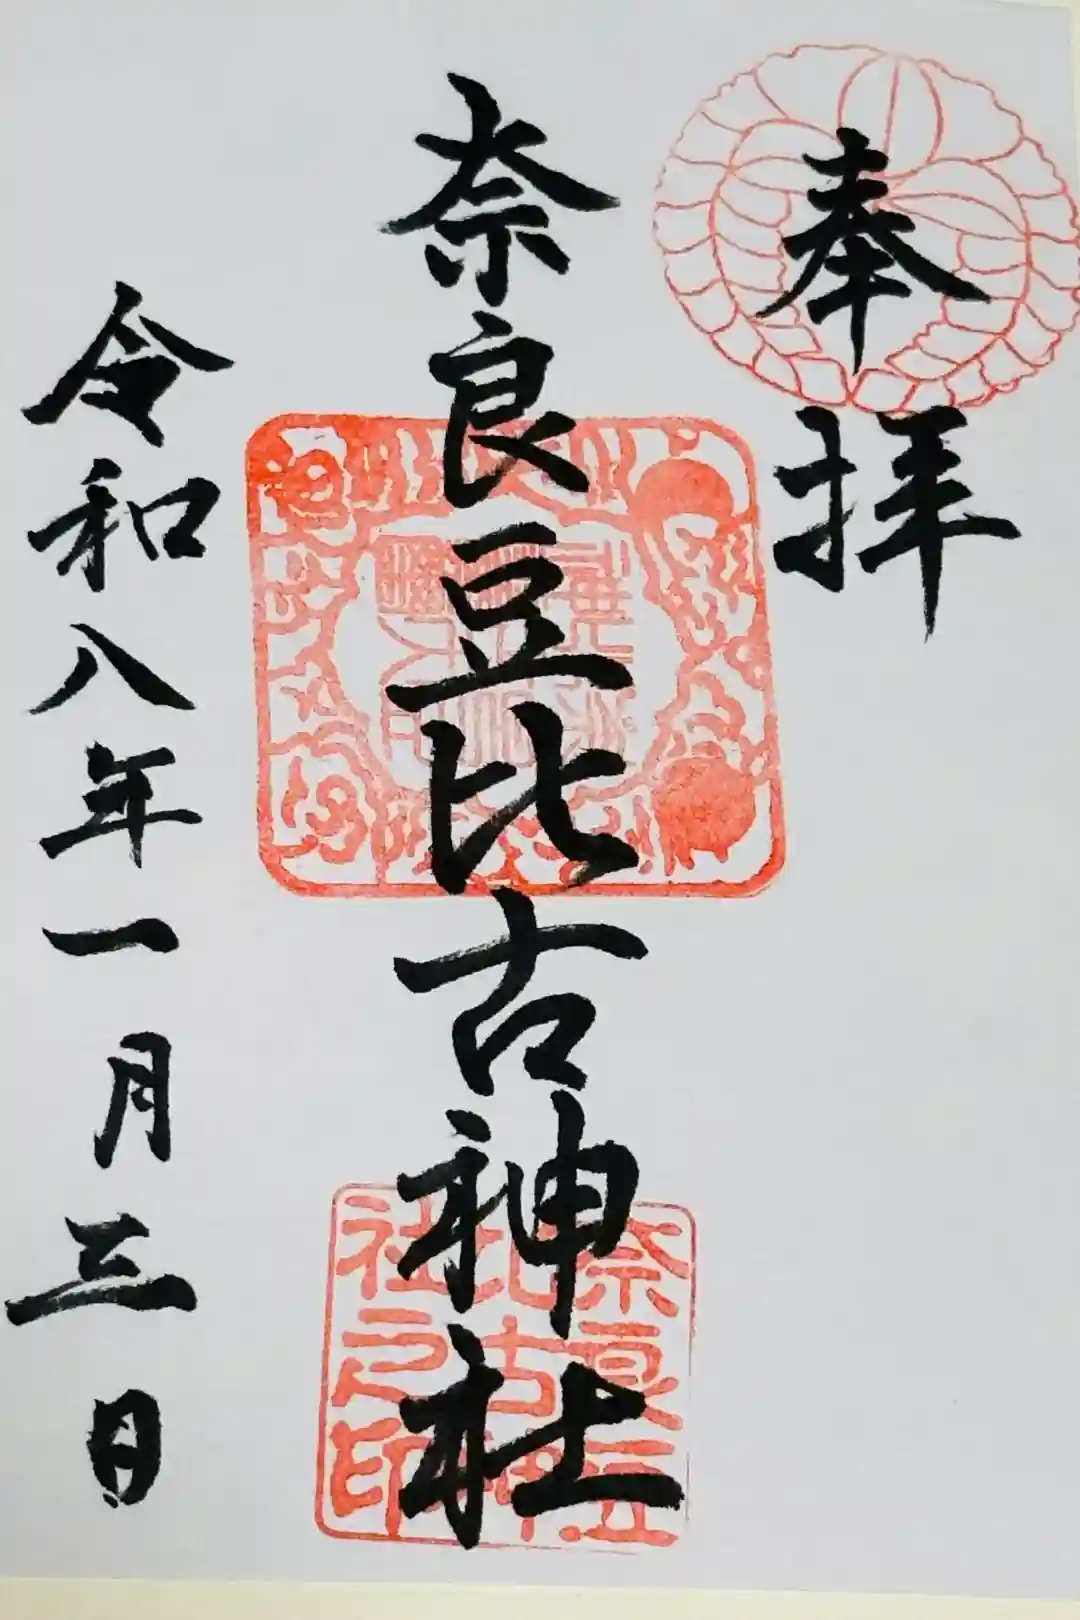 奉拝
奈良豆比古神社
令和八年一月三日
奈良豆比古神社之印